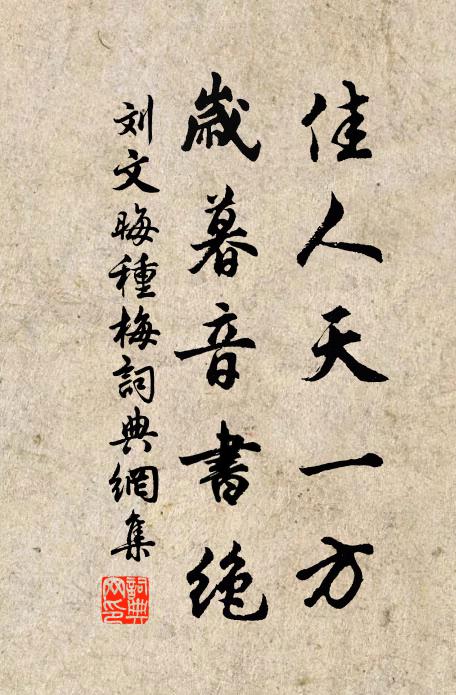 佳人天一方
歲暮音書絶
刘文晦種梅詞典網集
詞典網印